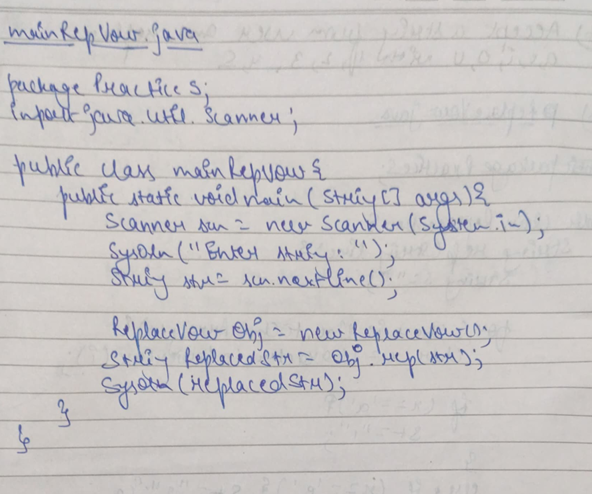 mainRepVow.java
package Practice5;
import java.util.Scanner;
public class mainRepVow{
public static void main(String[] args){
Scanner scn = new Scanner(System.in);
Sysoln("Enter string: ");
String str= scn.nextLine();
ReplaceVow Obj = new ReplaceVow();
String ReplacedStr= Obj.rep(str);
Sysoln(replacedStr);
}
}